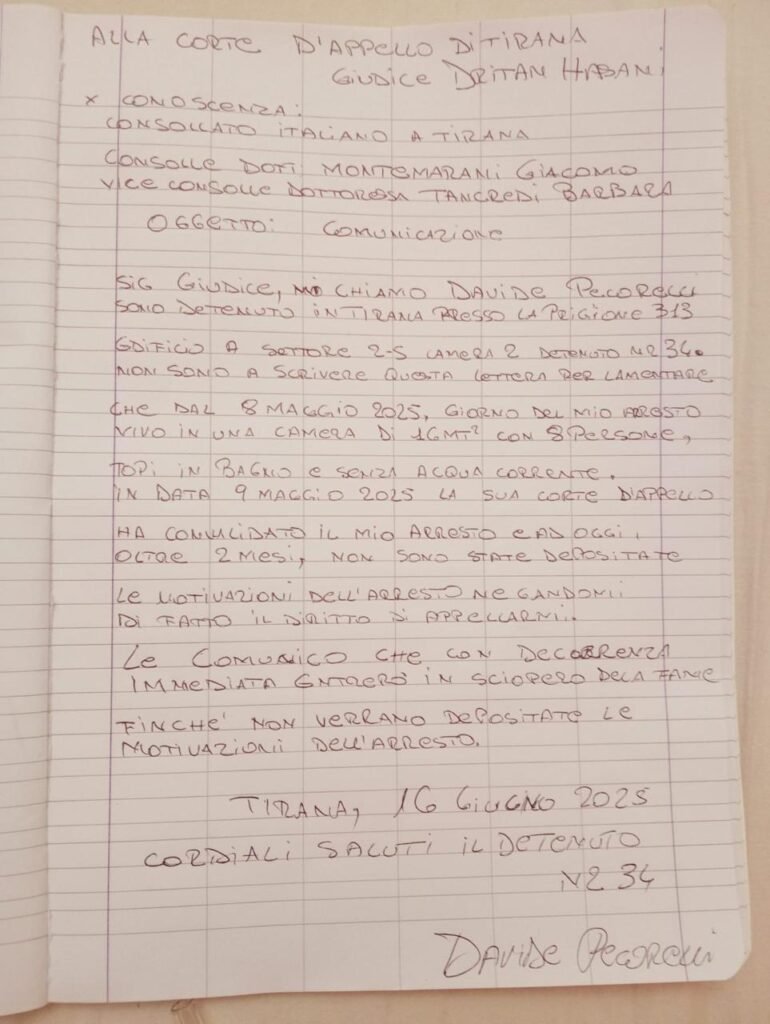 ALLA CORTE D'APPELLO DI TIRANA
GIUDICE DRITAN HABANI
x CONOSCENZA:
CONSOLLATO ITALIANO A TIRANA
CONSOLLE DOTT MONTEMARANI GIACOMO
VICE CONSOLLE DOTTORESSA TANCREDI BARBARA
OGGETTO: COMUNICAZIONE
SIG GIUDICE, MI CHIAMO DAVIDE PECORELLI
SONO DETENUTO IN TIRANA PRESSO LA PRIGIONE 313
EDIFICIO A SETTORE 2-S CAMERA 2 DETENUTO NR 34.
NON SONO A SCRIVERE QUESTA LETTERA PER LAMENTARE
CHE DAL 8 MAGGIO 2025, GIORNO DEL MIO ARRESTO
VIVO IN UNA CAMERA DI 16MT² CON 8 PERSONE,
TOPI IN BAGNO E SENZA ACQUA CORRENTE.
IN DATA 9 MAGGIO 2025 LA SUA CORTE D'APPELLO
HA CONVALIDATO IL MIO ARRESTO E AD OGGI,
OLTRE 2 MESI, NON SONO STATE DEPOSITATE
LE MOTIVAZIONI DELL'ARRESTO NEGANDOMI
DI FATTO IL DIRITTO DI APPELLARMI..
LE COMUNICO CHE CON DECORRENZA
IMMEDIATA ENTRERÒ IN SCIOPERO DELA FAME
FINCHE' NON VERRANO DEPOSITATE LE
MOTIVAZIONI DELL'ARRESTO.
TIRANA, 16 GIUGNO 2025
CORDIALI SALUTI IL DETENUTO
NR 34
DAVIDE PECORELLI